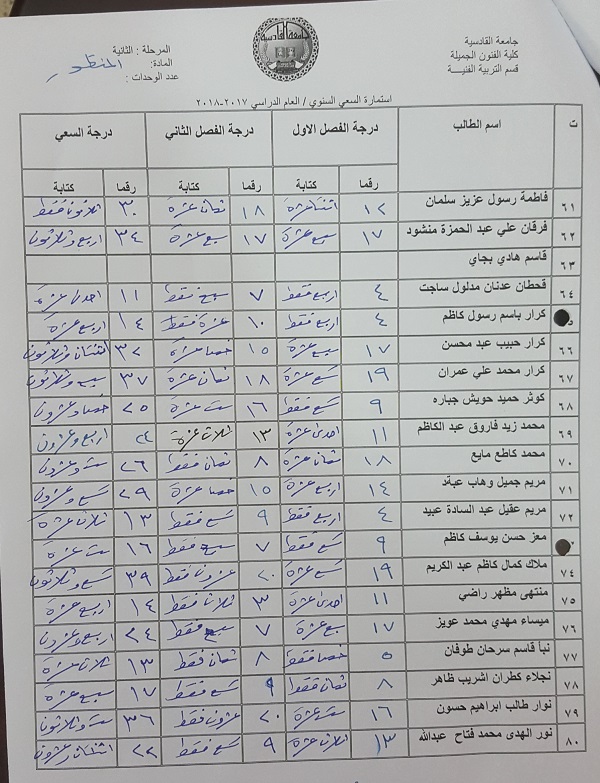 جامعة القادسية
كلية الفنون الجميلة
قسم التربية الفنية
المرحلة : الثانية
المادة: المنظور
عدد الوحدات :
استمارة السعي السنوي / العام الدراسي ٢٠١٧-٢٠١٨
ت اسم الطالب درجة الفصل الاول درجة الفصل الثاني درجة السعي
رقما كتابة رقما كتابة رقما كتابة
٦١ فاطمة رسول عزيز سلمان ١٢ اثنتا عشرة ١٨ ثمان عشرة ٣٠ ثلاثون فقط
٦٢ فرقان علي عبد الحمزة منشود ١٧ سبع عشرة ١٧ سبع عشرة ٣٤ اربع وثلاثون
٦٣ قاسم هادي بجاي
٦٤ قحطان عدنان مدلول ساجت ٤ اربع فقط ٧ سبع فقط ١١ احدى عشرة
كرار باسم رسول كاظم ٤ اربع فقط ١٠ عشرة فقط ١٤ اربع عشرة
٦٦ كرار حبيب عبد محسن ١٧ سبع عشرة ١٥ خمسا عشرة ٣٢ اثنتان وثلاثون
٦٧ كرار محمد علي عمران ١٩ تسع عشرة ١٨ ثمان عشرة ٣٧ سبع وثلاثون
٦٨ كوثر حميد حويش جباره ٩ تسع فقط ١٦ ست عشرة ٢٥ خمسا وعشرون
٦٩ محمد زيد فاروق عبد الكاظم ١١ احدى عشرة ١٣ ثلاث عشرة ٢٤ اربع وعشرون
٧٠ محمد كاطع مايع ١٨ ثمان عشرة ٨ ثمان فقط ٢٦ ست وعشرون
٧١ مريم جميل وهاب عبد ١٤ اربع عشرة ١٥ خمسا عشرة ٢٩ تسع وعشرون
٧٢ مريم عقيل عبد السادة عبيد ٤ اربع فقط ٩ تسع فقط ١٣ ثلاث عشرة
معز حسن يوسف كاظم ٩ تسع فقط ٧ سبع فقط ١٦ ست عشرة
٧٤ ملاك كمال كاظم عبد الكريم ١٩ تسع عشرة ٢٠ عشرون فقط ٣٩ تسع وثلاثون
٧٥ منتهى مظهر راضي ١١ احدى عشرة ٣ ثلاث فقط ١٤ اربع عشرة
٧٦ ميساء مهدي محمد عويز ١٧ سبع عشرة ٧ سبع فقط ٢٤ اربع وعشرون
٧٧ نبأ قاسم سرحان طوفان ٥ خمسا فقط ٨ ثمان فقط ١٣ ثلاث عشرة
٧٨ نجلاء كطران اشريب ظاهر ٨ ثمان فقط ٩ تسع فقط ١٧ سبع عشرة
٧٩ نوار طالب ابراهيم حسون ١٦ ست عشرة ٢٠ عشرون فقط ٣٦ ست وثلاثون
٨٠ نور الهدى محمد فتاح عبدالله ١٣ ثلاث عشرة ٩ تسع فقط ٢٢ اثنتان وعشرون